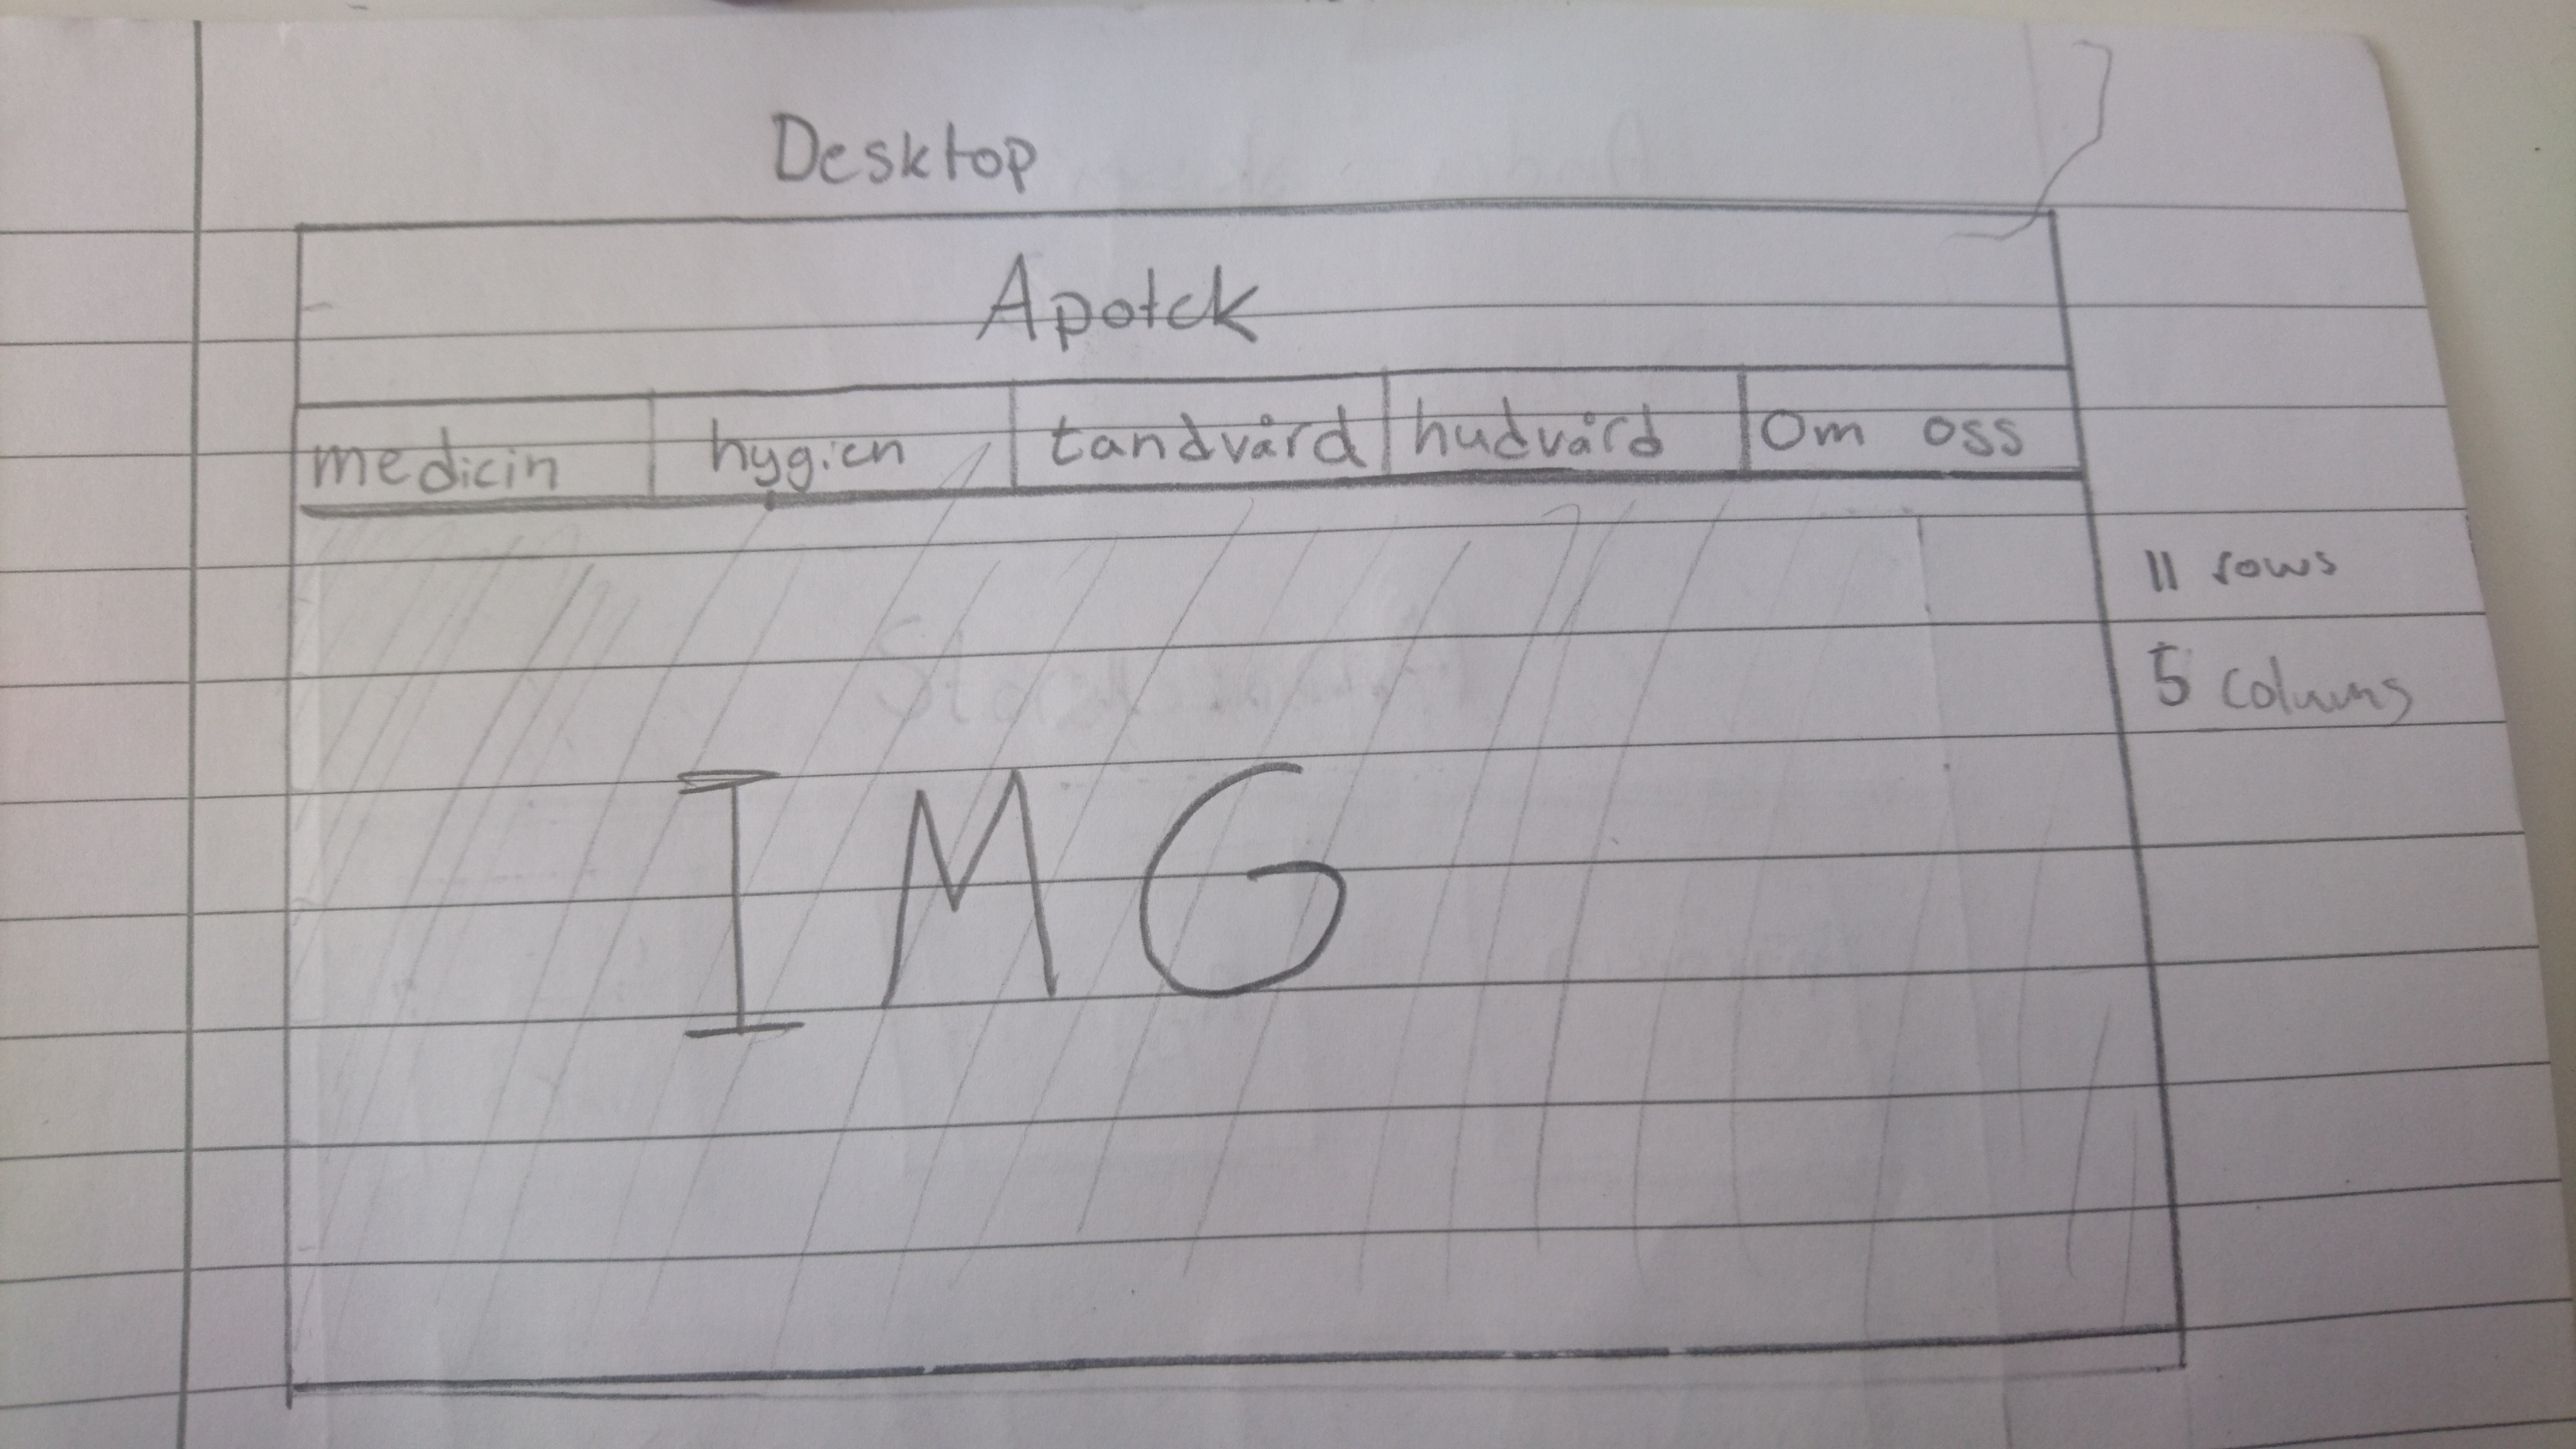 Desktop
Apotek
medicin hygien tandvård hudvård Om oss
11 rows
5 Columns
IMG